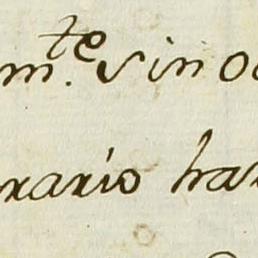 m.te sin oc
rario ha